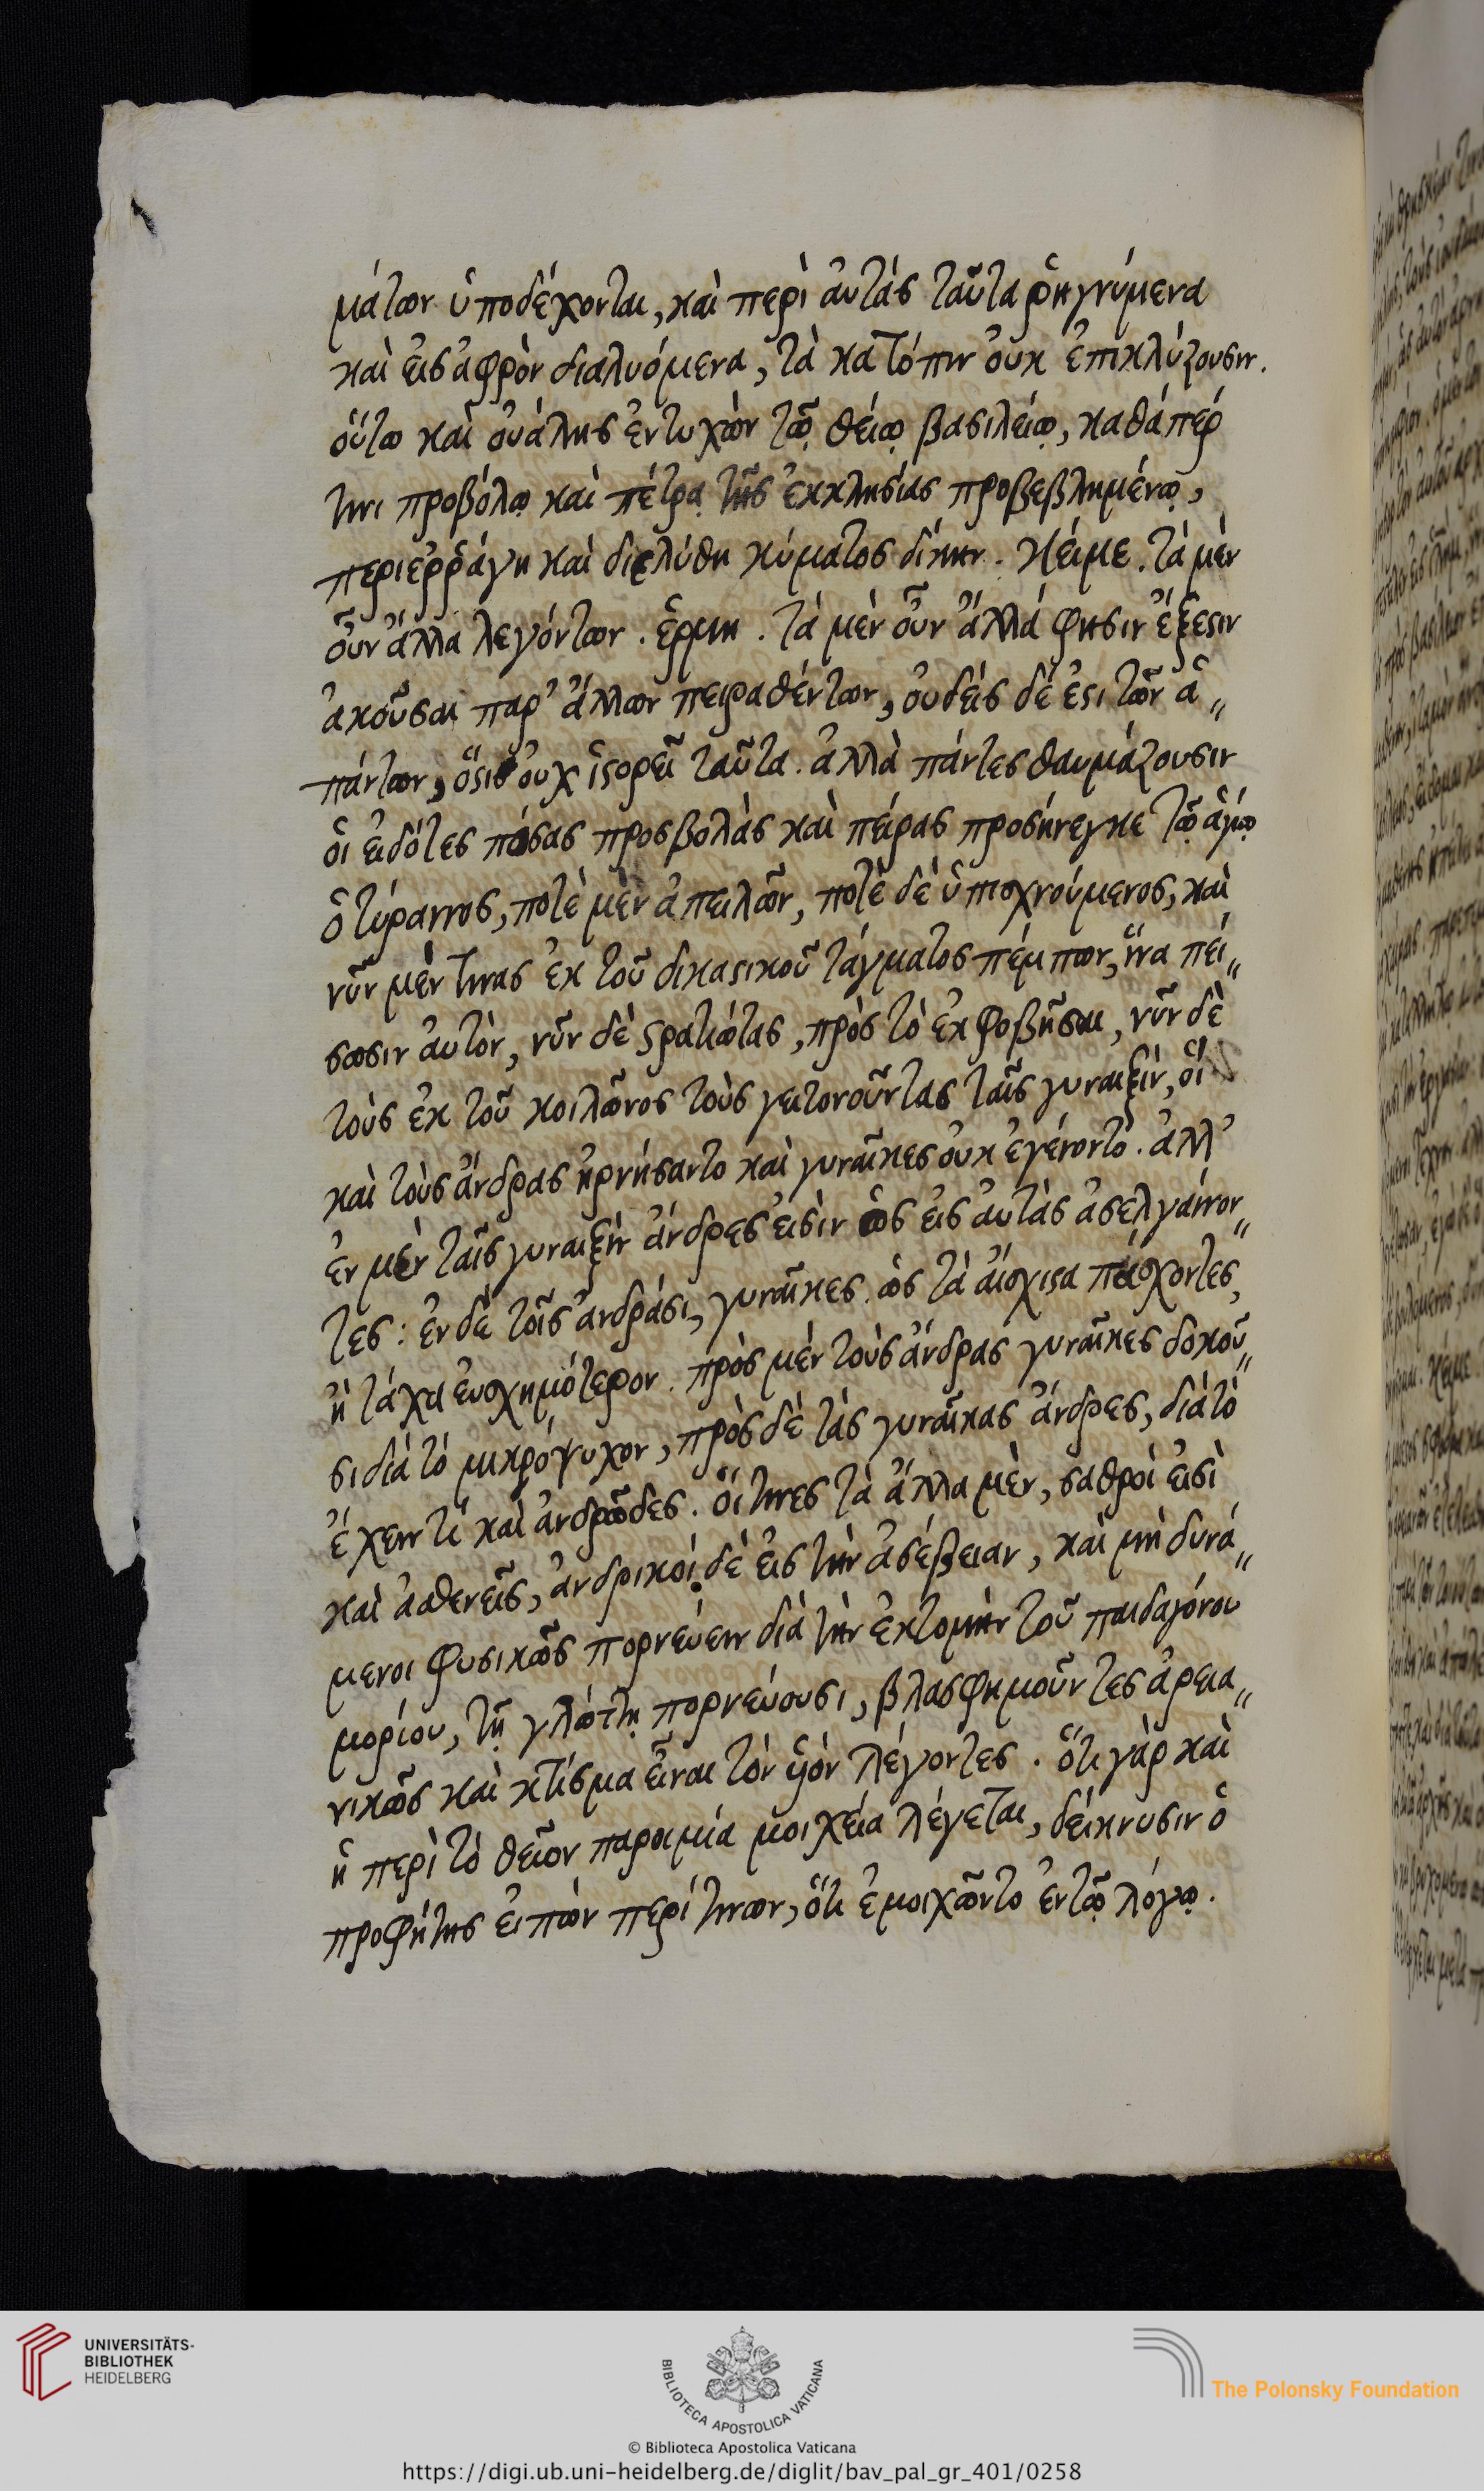 μάτων ὑποδέχονται, καὶ περὶ ἀυτὰς ταῦτα ῥηγνύμενα
καὶ εἰς ἀφρὸν διαλυόμενα, τὰ κατόπιν ὀυκ ἐπικλύζουσιν.
οὕτω καὶ ὀυάλης ἐντυχὼν τῷ θείῳ βασιλείῳ, καθάπερ
τινὶ προβόλῳ καὶ πέτρᾳ τῆς ἐκκλησίας προβεβλημένῳ,
περιεῤῥάγη καὶ διελύθη κύματος δίκην. Κείμε. τὰ μὲν
οὖν ἄλλα λεγόντων. ἑρμη. τὰ μὲν οὖν ἄλλά φησιν ἔξεστιν
ἀκοῦσαι παρ' ἄλλων πειραθέντων, ὀυδεὶς δέ ἐστι τῶν ἁ„
πάντων, ὅστις ὀυχ ἱστορεῖ ταῦτα. ἀλλὰ πάντες θαυμάζουσιν
οἱ εἰδότες πόσας προσβολὰς καὶ πείρας προσήνεγκε τῷ ἁγίῳ
ὁ τύραννος, ποτὲ μὲν ἀπειλῶν, ποτὲ δὲ ὑπισχνούμενος, καὶ
νῦν μὲν τινὰς ἐκ τοῦ δικαστικοῦ τάγματος πέμπων, ἵνα πεί„
σωσιν ἀυτὸν, νῦν δὲ στρατιώτας, πρὸς τὸ ἐκφοβῆσαι, νῦν δὲ
τοὺς ἐκ τοῦ κοιλῶνος τοὺς γειτονοῦντας ταῖς γυναιξὶν, οἳ
καὶ τοὺς ἄνδρας ἠρνήσαντο καὶ γυναῖκες ὀυκ ἐγένοντο. ἀλλ'
ἐν μὲν ταῖς γυναιξὶν ἄνδρες εἰσὶν ὡς εἰς ἀυτὰς ἀσελγαίνον„
τες: ἐν δὲ τοῖς ἀνδράσι, γυναῖκες. ὡς τὰ αἴσχιστα πάσχοντες,
ἢ τάχα ἐυσχημότερον. πρὸς μὲν τοὺς ἄνδρας γυναῖκες δοκοῦ„
σι διὰ τὸ μικρόψυχον, πρὸς δὲ τὰς γυναῖκας ἄνδρες, διὰ τὸ
ἔχειν τὶ καὶ ἀνδρῶδες. οἵτινες τὰ ἄλλα μὲν, σαθροὶ εἰσὶ
καὶ ἀσθενεῖς, ἀνδρικοί δὲ εἰς τὴν ἀσέβειαν, καὶ μὴ δυνά„
μενοι φυσικῶς πορνεύειν διὰ τὴν ἐκτομὴν τοῦ παιδαγόνου
μορίου, τῇ γλώττῃ πορνεύουσι, βλασφημοῦντες ἀρεια„
νικῶς καὶ κτίσμα εἶναι τὸν υἱὸν λέγοντες. ὅτι γὰρ καὶ
ἡ περὶ τὸ θεῖον παροιμία μοιχεία λέγεται, δείκνυσιν ὁ
προφήτης εἰπὼν περὶ τινων, ὅτι ἐμοιχῶντο ἐν τῷ λόγῳ.
UNIVERSITÄTS-
BIBLIOTHEK
HEIDELBERG
BIBLIOTECA APOSTOLICA VATICANA
The Polonsky Foundation
© Biblioteca Apostolica Vaticana
https://digi.ub.uni-heidelberg.de/diglit/bav_pal_gr_401/0258